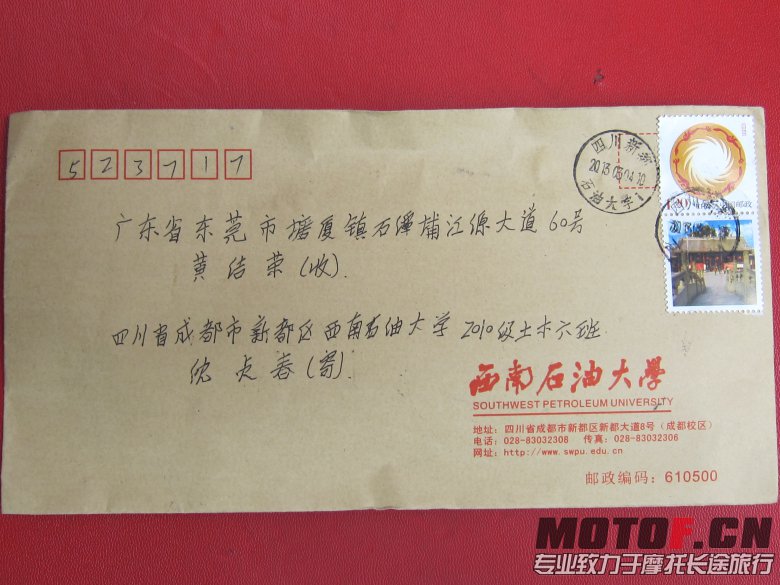 523717
四川新都
2013.05.04.10
石油大学1
中国邮政
广东省东莞市塘厦镇石潭埔江源大道60号
黄结荣(收)
四川省成都市新都区西南石油大学2010级土木六班
沈贞春(寄)
西南石油大学
SOUTHWEST PETROLEUM UNIVERSITY
地址：四川省成都市新都区新都大道8号（成都校区）
电话：028-83032308 传真：028-83032306
网址：http://www.swpu.edu.cn
邮政编码：610500
MOTOF.CN
专业致力于摩托长途旅行